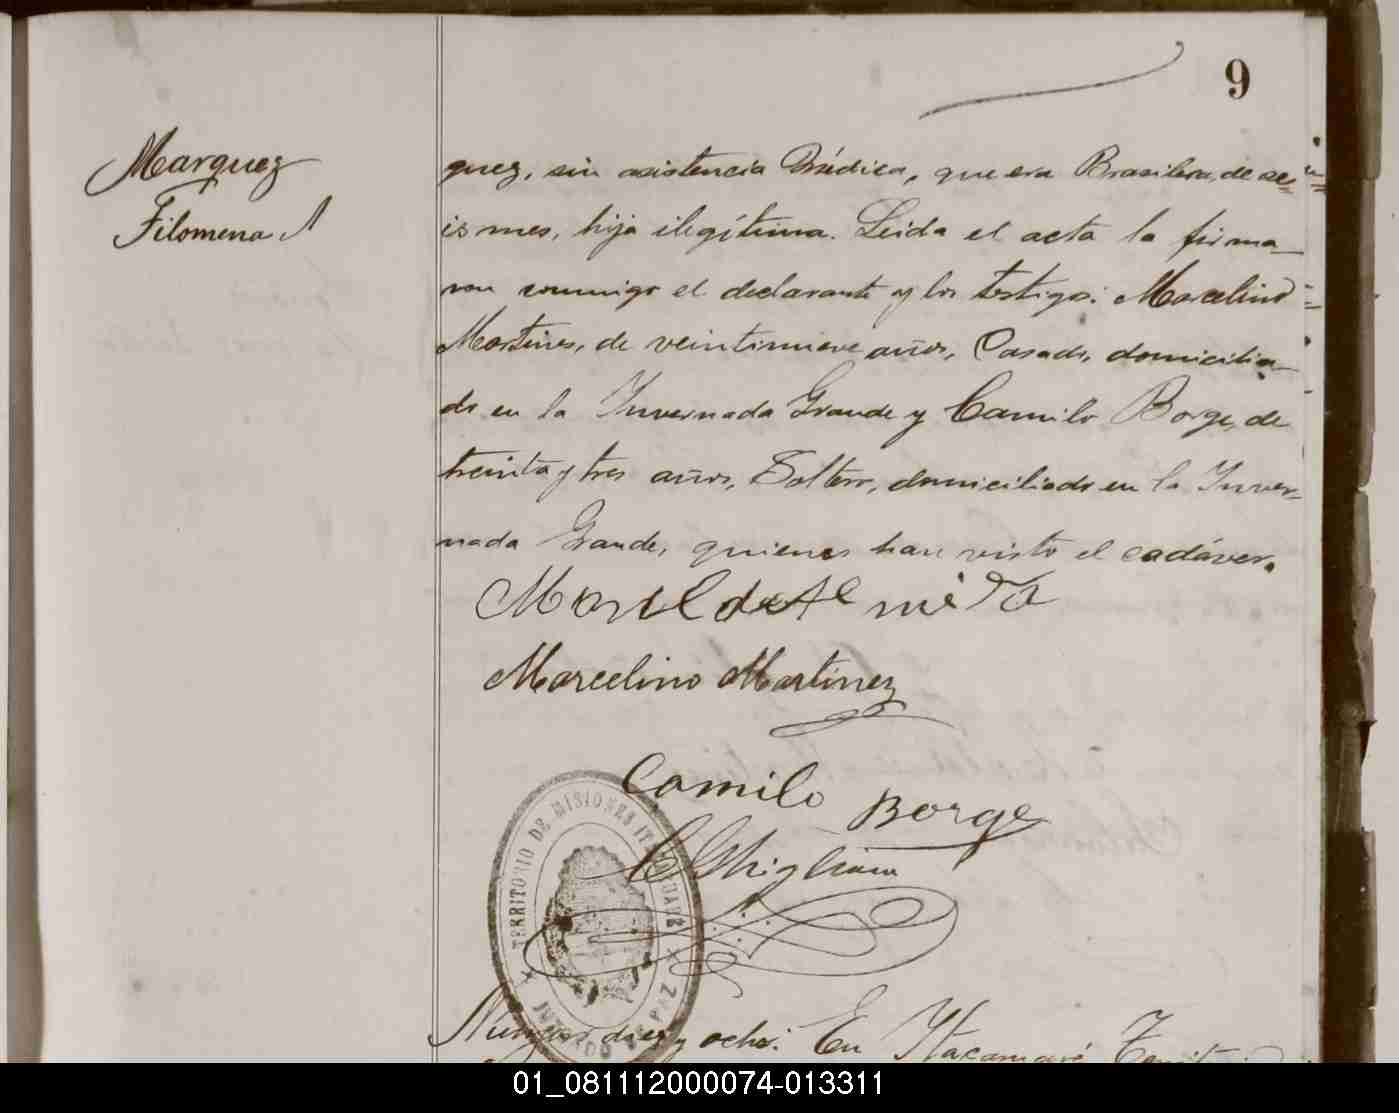 9
Marquez
Filomena
quez, sin asistencia Médica, que era Brasilera, de se
is mes, hija ilegítima. Leida el acta la firma
ron conmigo el declarante y los testigos: Marcelino
Martines, de veintinueve años, Casado, domicilia
do en la Invernada Grande y Camilo Borge, de
treinta y tres años, Soltero, domiciliado en la Inver
nada Grande, quienes han visto el cadáver.
Marcelino Martinez
Camilo Borge
TERRITORIO DE MISIONES
JUZGADO DE PAZ
Numero diez y ocho: En Itacaruaré
01_081112000074-013311